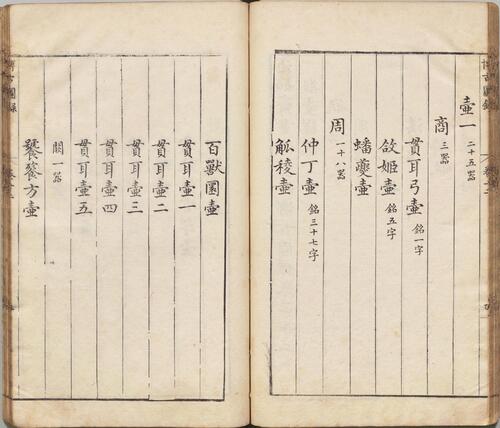 壺一 二十五器
商 三器
貫耳弓壺 銘一字
欱姬壺 銘五字
蟠夔壺
周 一十八器
仲丁壺 銘三十七字
觚稜壺
百獸圜壺
貫耳壺一
貫耳壺二
貫耳壺三
貫耳壺四
貫耳壺五
闕一器
饕餮方壺
博古圖錄